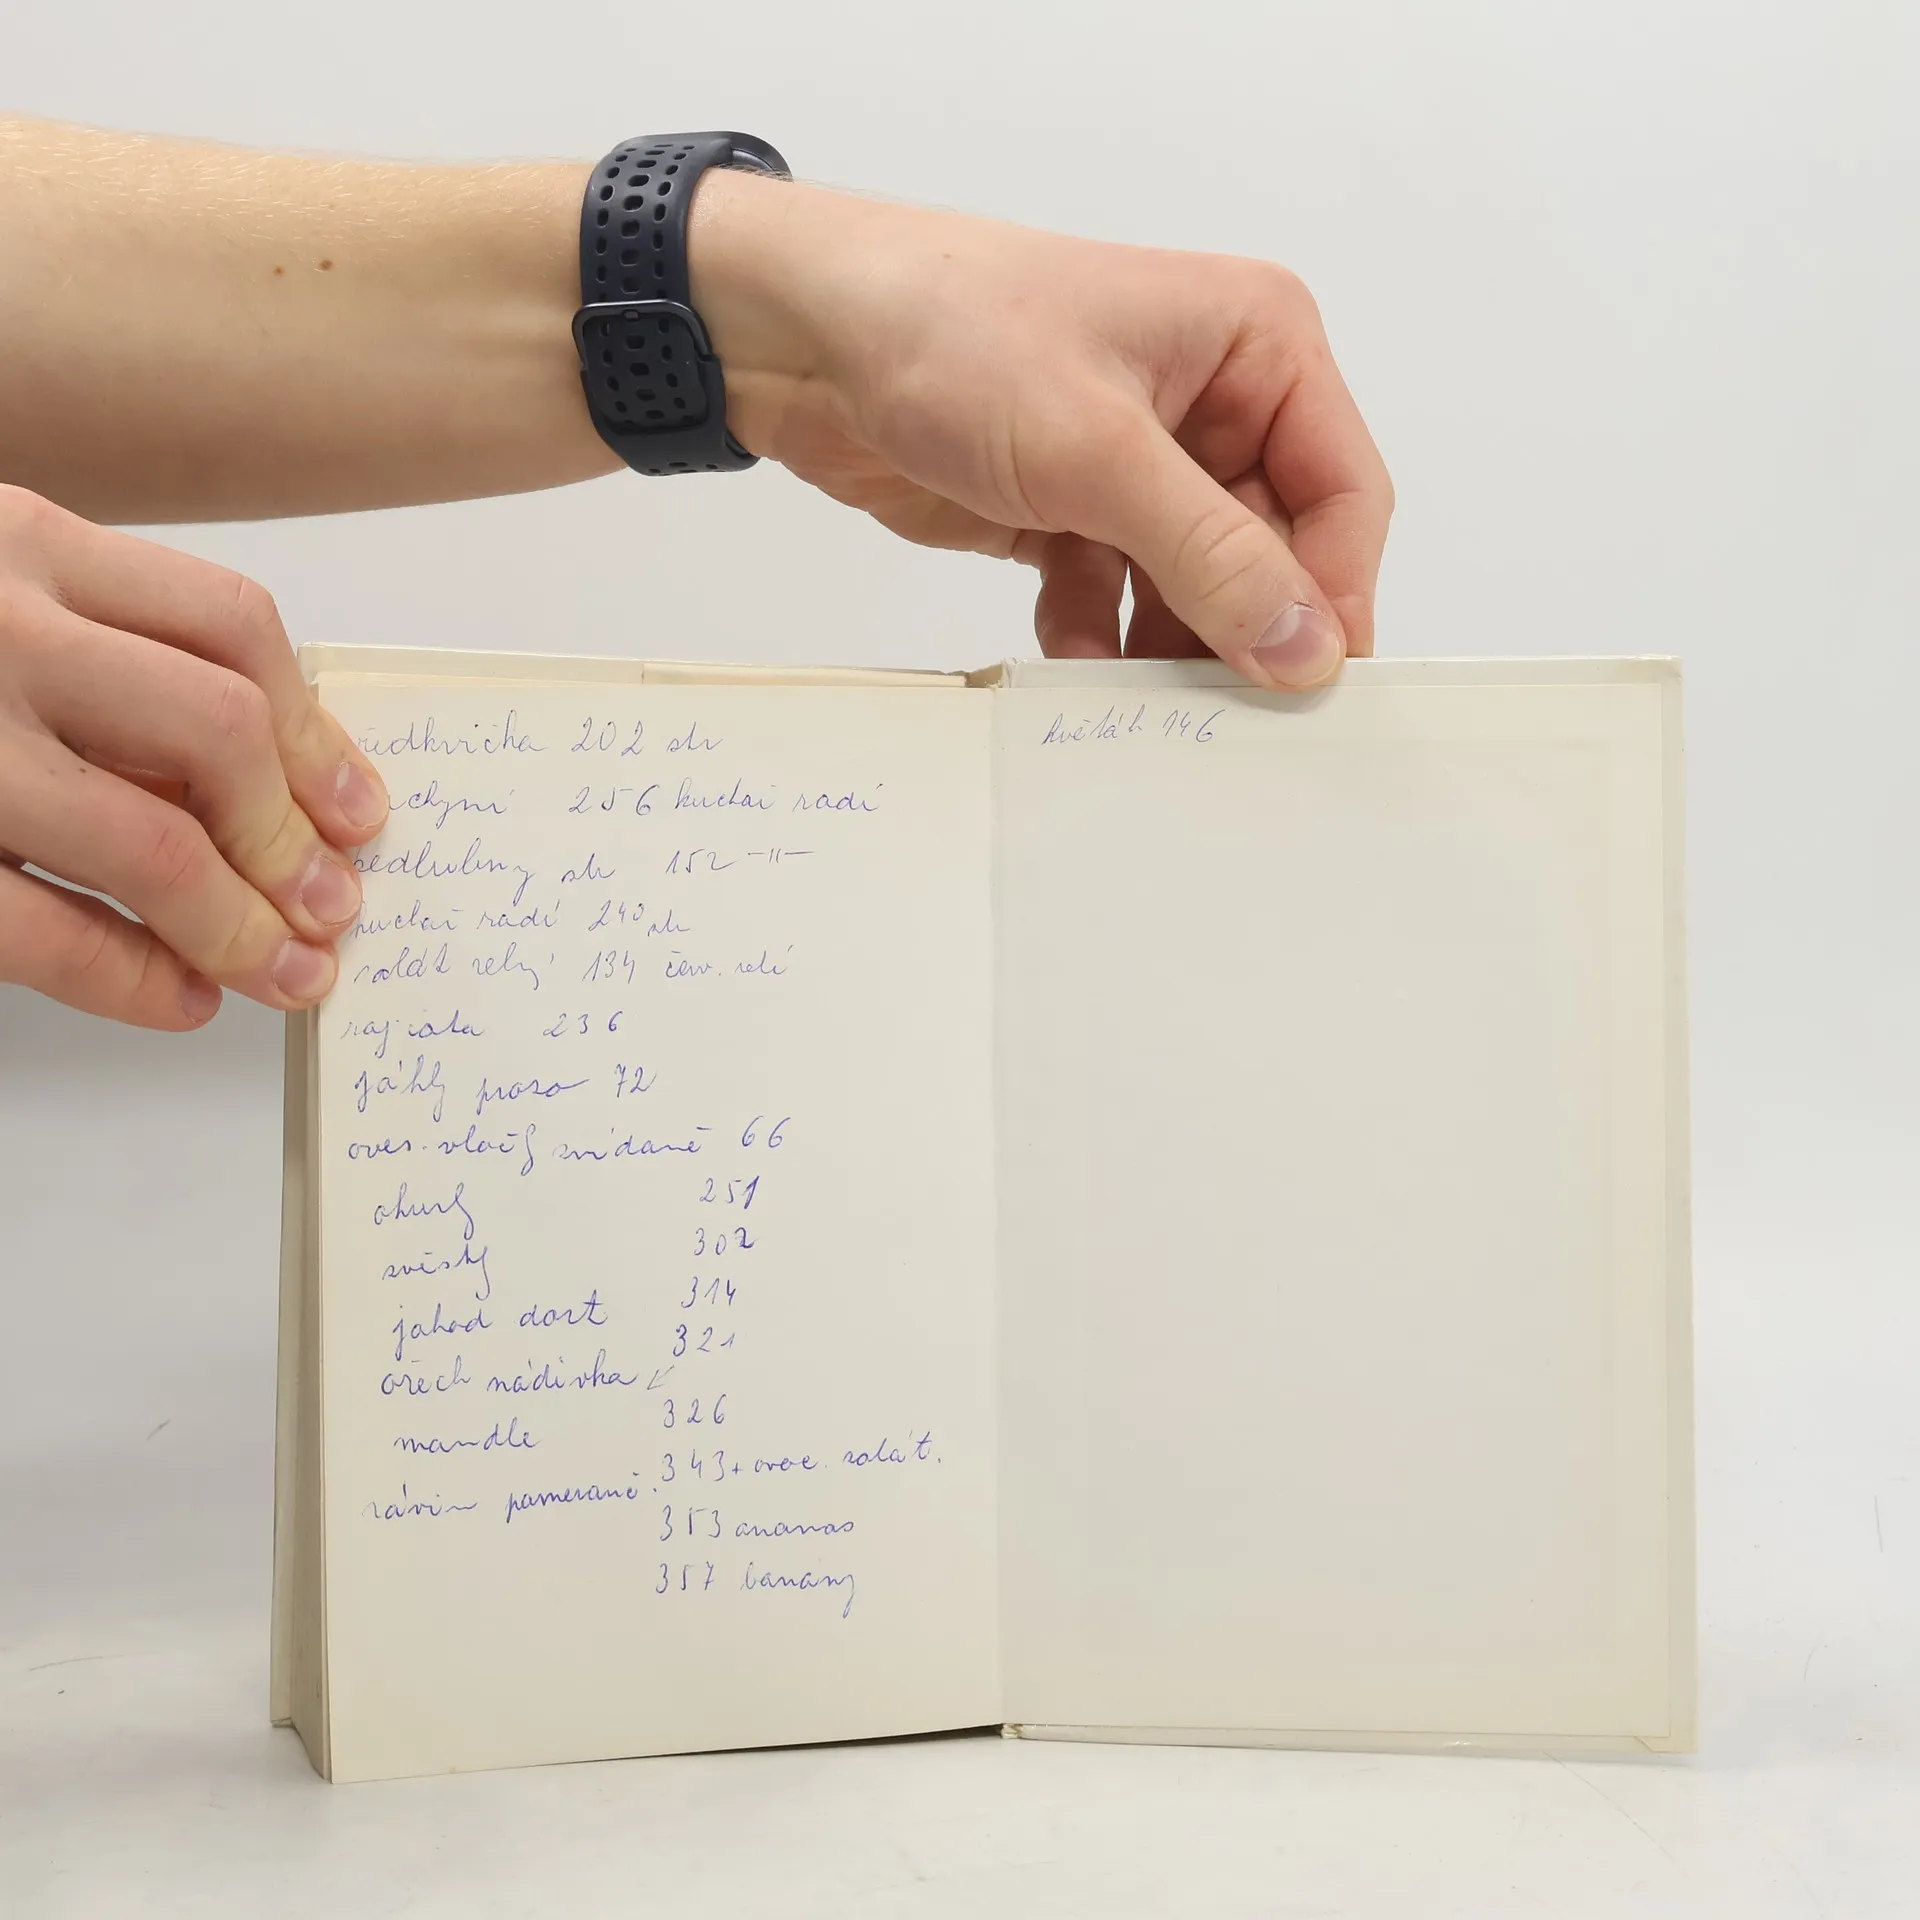 ředkvička 202 str
chyní 256 kuchař radí
kedlubny str 152 -"-
kuchař radí 240 str
salát zelný 134 červ. zelí
rajčata 236
jáhly proso 72
oves. vločky snídaně 66
okurky 251
švestky 302
jahod dort 314
ořech nádivka 321
mandle 326
závin pomeranč. 343 + ovoc. salát.
353 ananas
357 banány
květák 146